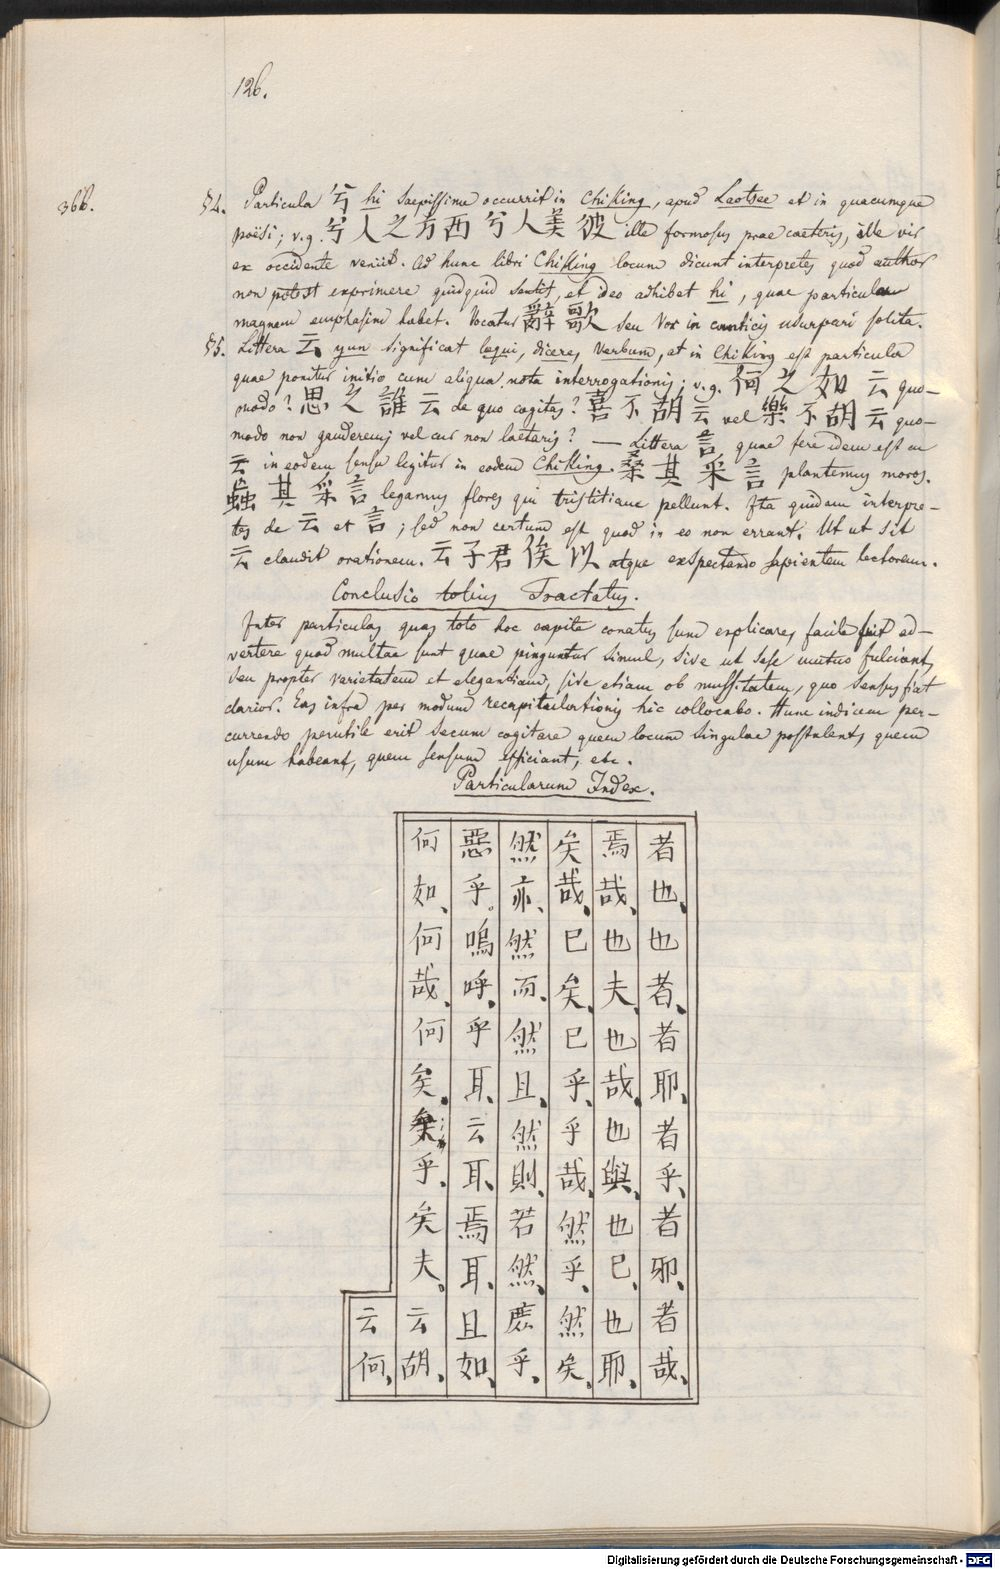 126.
366.
§4. Particula 兮 hi saepissime occurrit in ChiKing, apud Laotsee et in quacumque
poësi; v.g. 兮人之方西兮人美彼 ille formosus prae caeteris, ille vir
ex occidente veniit. Ad hunc libri ChiKing locum dicunt interpretes quod author
non potest exprimere quidquid sentit, et ideo adhibet hi, quae particula
magnam emphasim habet. Vocatur 辭歌 seu Vox in canticis usurpari solita.
§5. Littera 云 yun significat loqui, dicere, Verbum, et in ChiKing est particula
quae ponitur initio cum aliqua nota interrogationis; v.g. 何之如云 quo-
modo? 思之誰云 de quo cogitas? 喜不胡云 vel 樂不胡云 quo-
modo non gauderem, vel cur non laetaris? — Littera 言 quae fere idem est ac
云 in eodem sensu legitur in eodem ChiKing. 桑其采言 plantemus moros.
蝱其采言 legamus flores qui tristitiam pellunt. Ita quidam interpre-
tes de 云 et 言; sed non certum est quod in eo non errant. Ut ut sit
云 claudit orationem. 云子君俟以 atque exspectando sapientem lectorem.
Conclusio totius Tractatus.
Inter particulas quas toto hoc capite conatus sum explicare, facile fuit ad-
vertere quod multae sunt quae pinguntur simul, sive ut sese mutuo fulciant,
seu propter varietatem et elegantiam, sive etiam ob mussitatem, quo sensus fiat
clarior. Eas infra per modum recapitulationis hic collocabo. Hunc indicem per-
currendo perutile erit secum cogitare quem locum singulae postulent, quem
usum habeant, quem sensum efficiant, etc.
Particularum Index.
者也、也者、者耶、者乎、者邪、者哉、
焉哉、也夫、也哉、也與、也已、也耶、
矣哉、已矣、已乎、乎哉、然乎、然矣、
然亦、然而、然且、然則、若然、庶乎、
惡乎。嗚呼、乎耳、云耳、焉耳、且如、
何如、何哉、何矣、矣乎、矣夫、云胡、
云何、
Digitalisierung gefördert durch die Deutsche Forschungsgemeinschaft - DFG